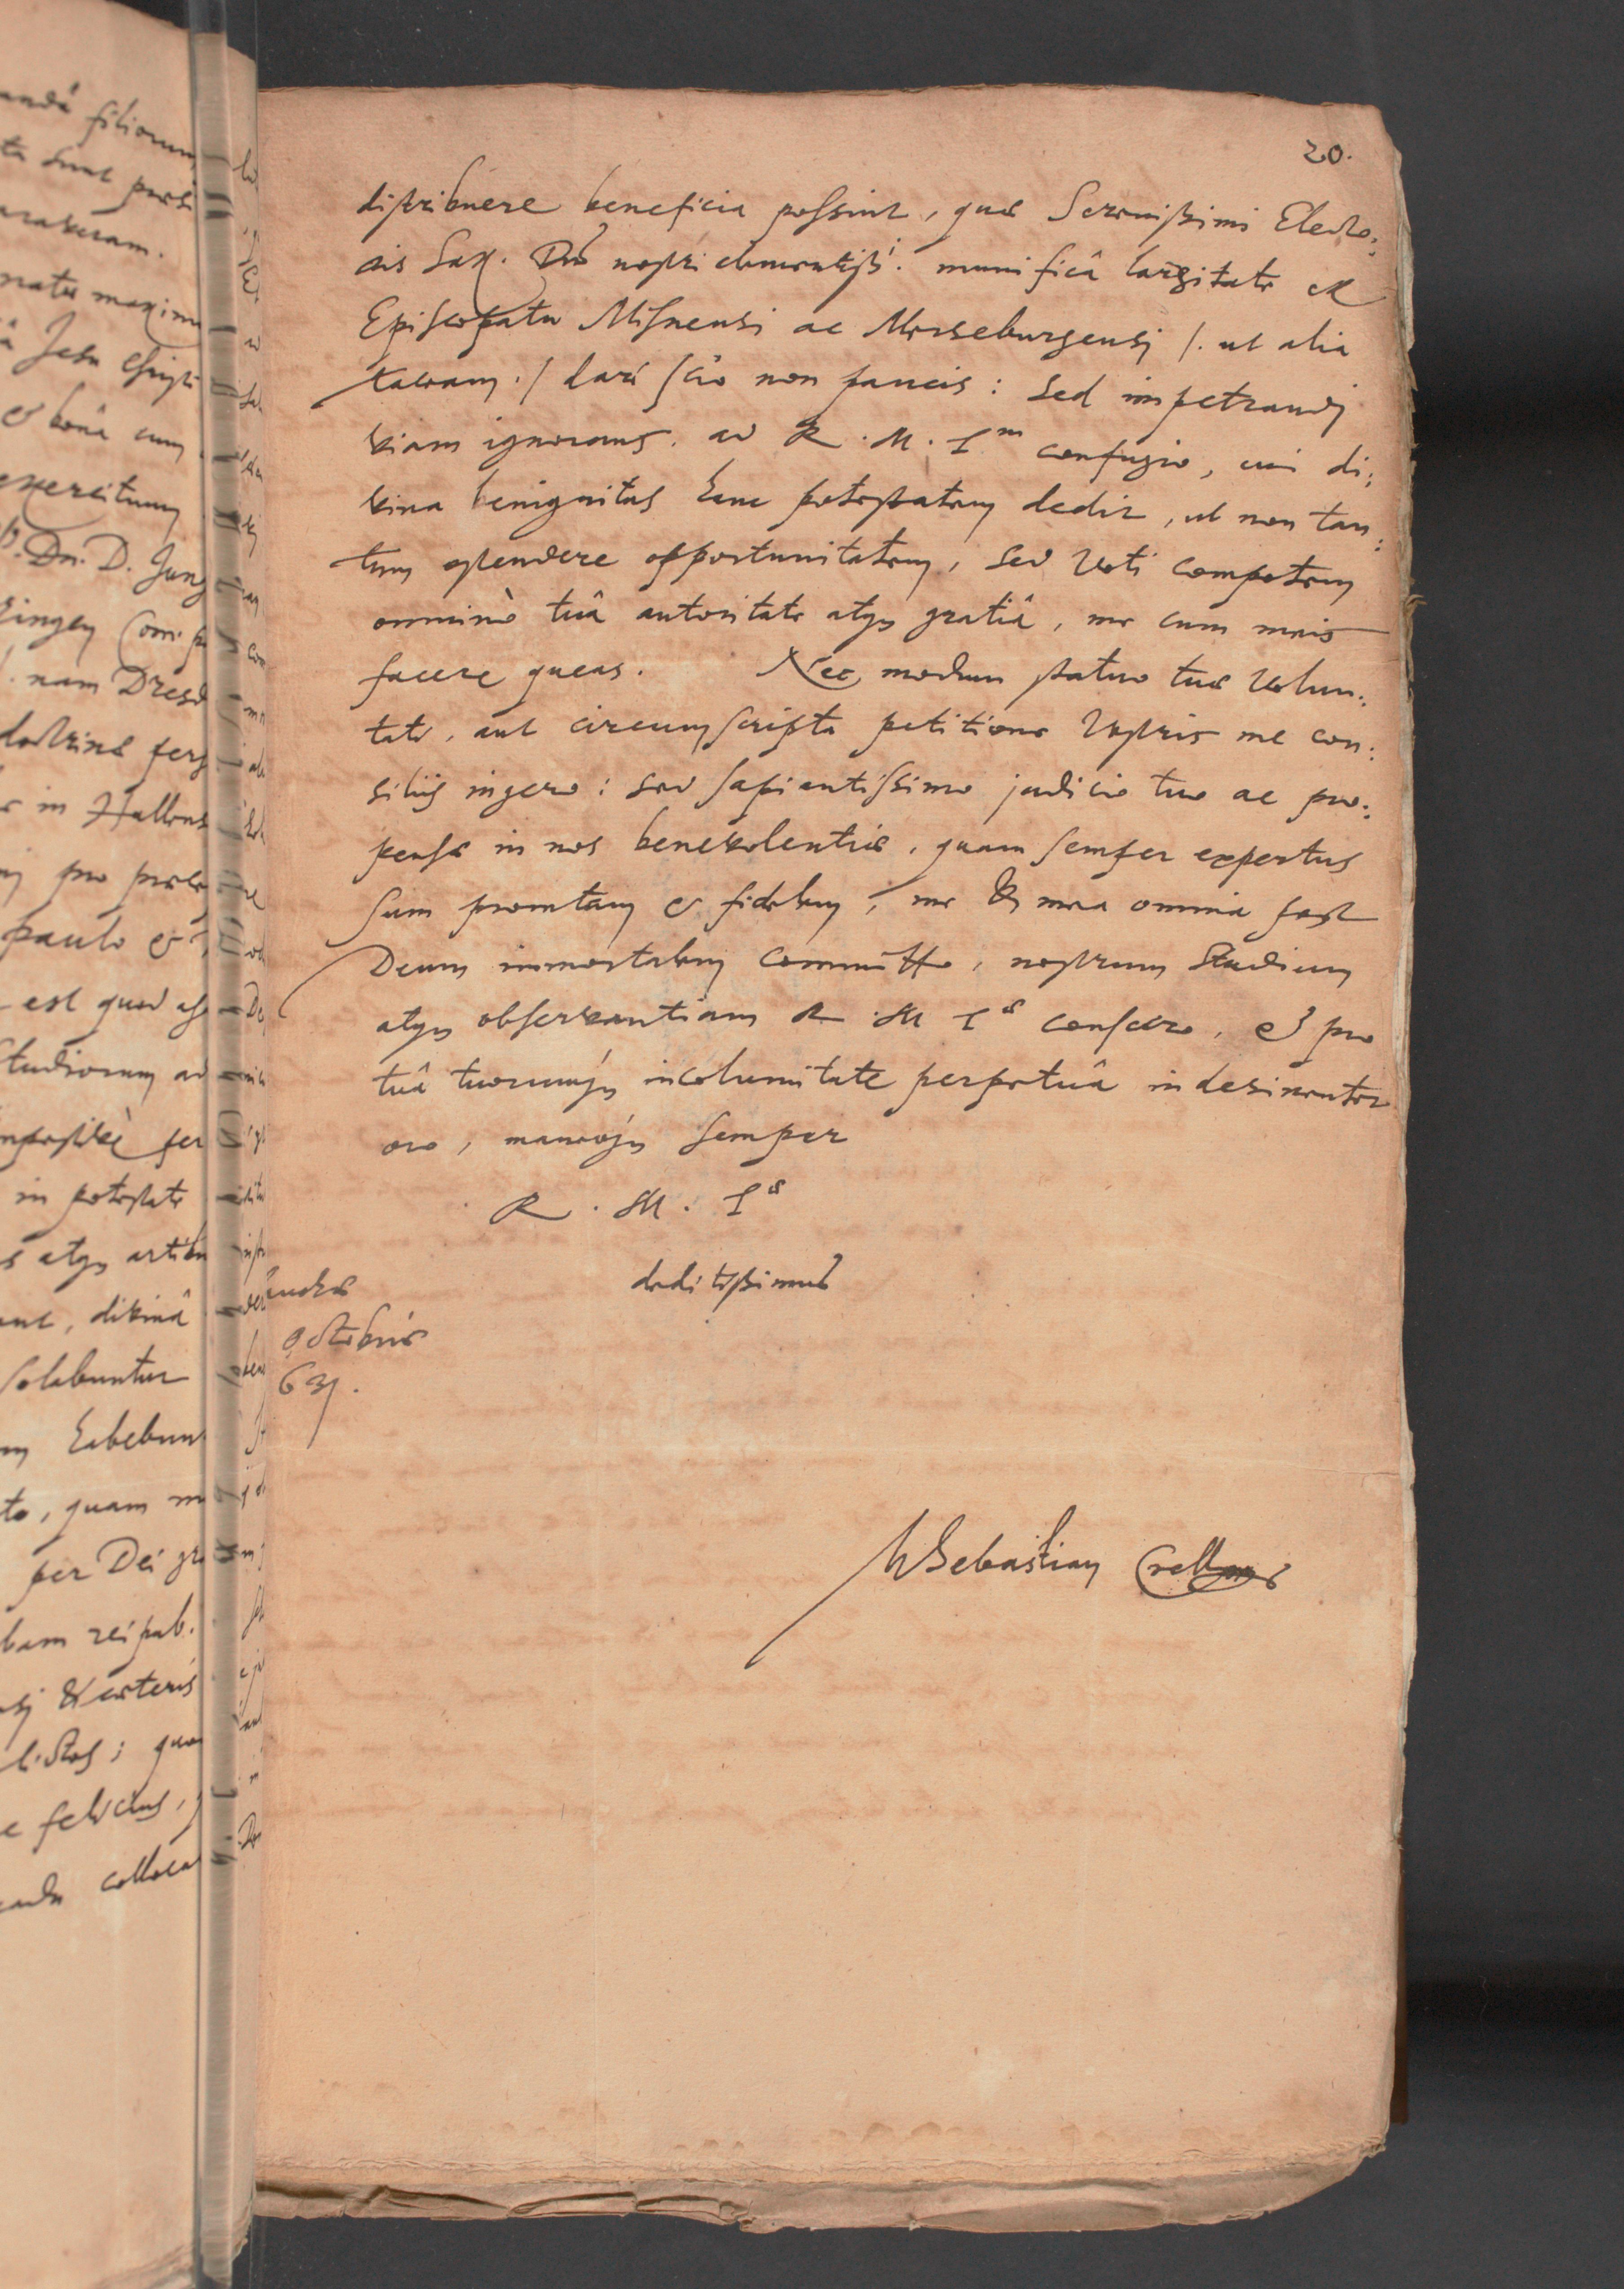 20.
distribuere beneficia possint, quae Serenissimi Electo:
ris Sax. Dnî nostri clementiss. munificâ largitate ex
Episcopatu Misnensi ac Merseburgensi /. ut alia
taceam ./ dari scio non paucis: sed impetrandi
viam ignorans, ad R. M. T.m confugio, cui di:
vina benignitas hanc potestatem dedit, ut non tan:
tum ostendere opportunitatem, sed voti compotem
omninò tuâ autoritate atq; gratiâ, me cum meis
facere queas. Nec modum statuo tuae volun:
tati, aut circumscripta petitione vestris me con:
siliis ingero: sed sapientissimo judicio tuo ac pro:
pensae in nos benevolentiae, quam semper expertus
sum promtam & fidelem, me & mea omnia post
Deum immortalem committo, nostrum studium
atq; observantiam R. M. T.ae consecro, & pro
tuâ tuorumq; incolumitate perpetuâ indesinenter
oro, maneoq; semper
R. M. T.ae
deditissimus
Octobris
631.
M Sebastian Crellius
andâ filiorum
ta sunt
maxim
â Jesu Christi
& bonâ cum
exercitum
Dn. D. Jung
nam Dresd
doctrinae
in Hallens
pro
paulo &
est quod
Studiorum ad
in potestate
atq; artibu
divinâ
solabuntur
habebun
quam
per Dei gr
bam reipub.
& caeteris
felicius,
colloca